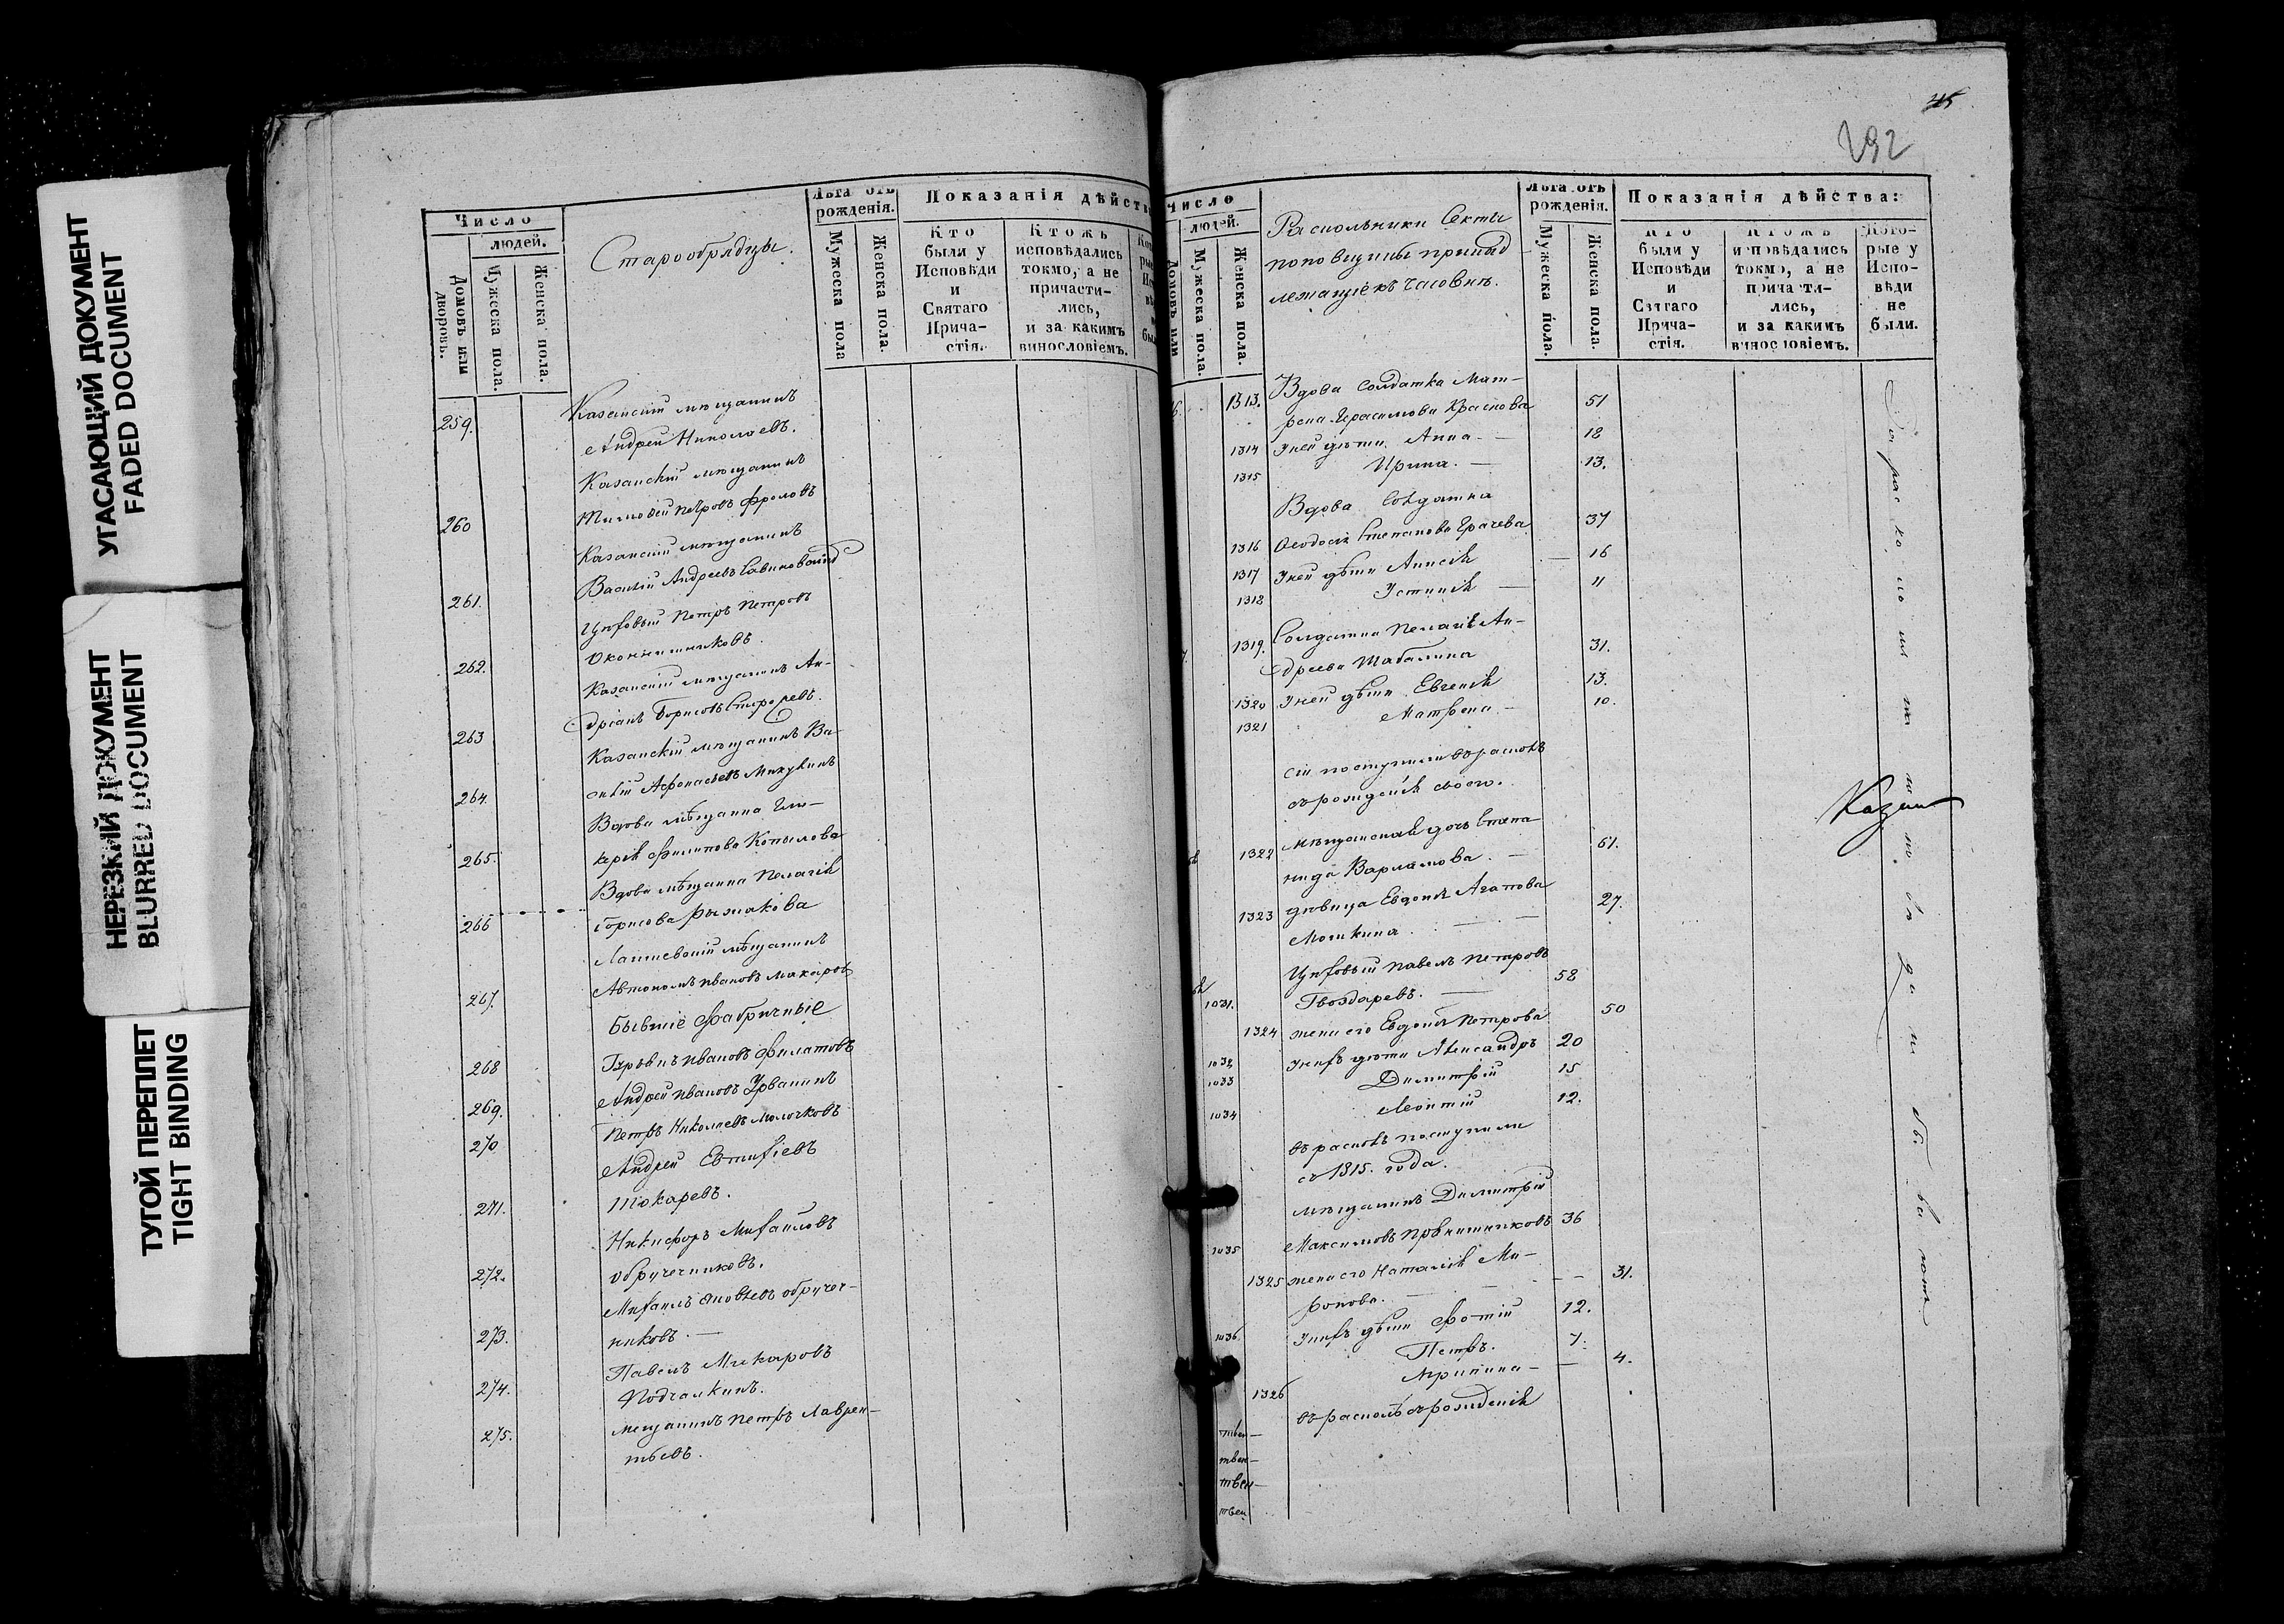 УГАСАЮЩИЙ ДОКУМЕНТ
FADED DOCUMENT
НЕРЕЗКИЙ ДОКУМЕНТ
BLURRED DOCUMENT
ТУГОЙ ПЕРЕПЛЕТ
TIGHT BINDING
Число
людей.
Домовъ или дворовъ.
Мужеска пола.
Женска пола.
Старообрядцы.
Лѣта отъ
рожденія.
Мужеска пола
Женска пола.
Показанія дѣйств
Кто
были у
Исповѣди
и
Святаго
Прича-
стія.
Ктожъ
исповѣдались
токмо, а не
причасти-
лись,
и за какимъ
винословіемъ.
Казанскій мѣщанинъ
259. Андрей Николаевъ.
Казанскій мѣщанинъ
260 Тимофей Петровъ Фроловъ
Казанскій мѣщанинъ
261. Василій Андреевъ
Цеховый Петръ Петровъ
262. Оконишниковъ.
Казанскій мѣщанинъ Ан-
263 дріанъ Борисовъ
Казанскій мѣщанинъ Ва-
264. силій Афонасьевъ Микулинъ
Вдова мѣщанка Гли-
265. керія Филипова Копылова
Вдова мѣщанка Пелагія
266 Борисова Рыжакова
Лаишевскій мѣщанинъ
267. Автономъ Ивановъ Макаровъ
Бывшіе Фабричные
268 Гурьянъ Ивановъ Филатовъ
269. Андрей Ивановъ Урванинъ
270 Петръ Николаевъ Молочковъ
Андрей Евтихіевъ
271. Токаревъ.
Никифоръ Михайловъ
272. Обручниковъ.
Михаилъ Яковлевъ обруч-
273. никовъ.
Павелъ Макаровъ
274. Подчалкинъ.
Мещанинъ Петръ Лаврен-
275. тьевъ.
45
292
Число
людей.
Домовъ или
Мужеска пола.
Женска пола.
Раскольники Секты
поповщины принад
лежащіе къ часовнѣ.
Лѣта отъ
рожденія.
Мужеска пола.
Женска пола.
Показанія дѣйства:
Кто
были у
Исповѣди
и
Святаго
Прича-
стія.
Ктожъ
исповѣдались
токмо, а не
причасти-
лись,
и за какимъ
винословіемъ.
Кото-
рые у
Испо-
вѣди
не
были.
Вдова солдатка Мат-
1313. рена Герасимова Краснова 51
1314 У ней дѣти Анна - 18
1315 Ирина. - 13.
Вдова Солдатка
1316 Ѳеодосія Степанова Грачева 37
1317 У ней дѣти Анисія - 16
1318 Устинія - 11
1319. Солдатка Пелагія Ан-
дреева Шабалина 31.
1320 У ней дѣти Евгенія 13.
1321 Матрена - 10.
сіи поступили въ расколъ
съ рожденія своего.
1322 Мѣщанская дочь Степа
нида Варламова. - 61.
1323 дѣвица Евдокія Агапова 27.
Мошкина.
Цеховый Павелъ Петровъ
1031. Гвоздаревъ. - 58
1324 жена его Евдокія Петрова 50
1032 У нихъ дѣти Александръ 20
1033 Димитрій 15
1034 Леонтій 12.
въ расколъ поступили
съ 1815. года.
мѣщанинъ Димитрій
1035 Максимовъ 36
1325 жена его Наталія Ми- 31.
ронова. -
1036 У нихъ дѣти Фотій 12.
Петръ. 7.
1326 Агрипина - 4.
въ расколѣ съ рожденія
твен-
твен-
твен-
твен